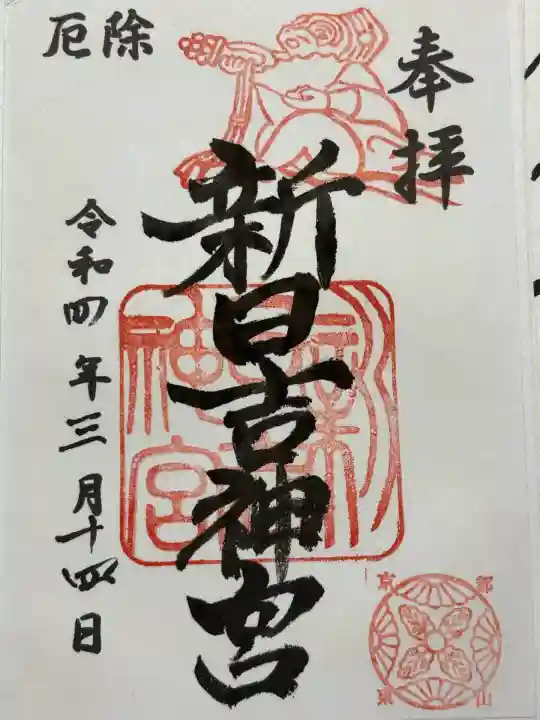 奉拝
厄除
新日吉神宮
令和四年三月十四日
京都
東山